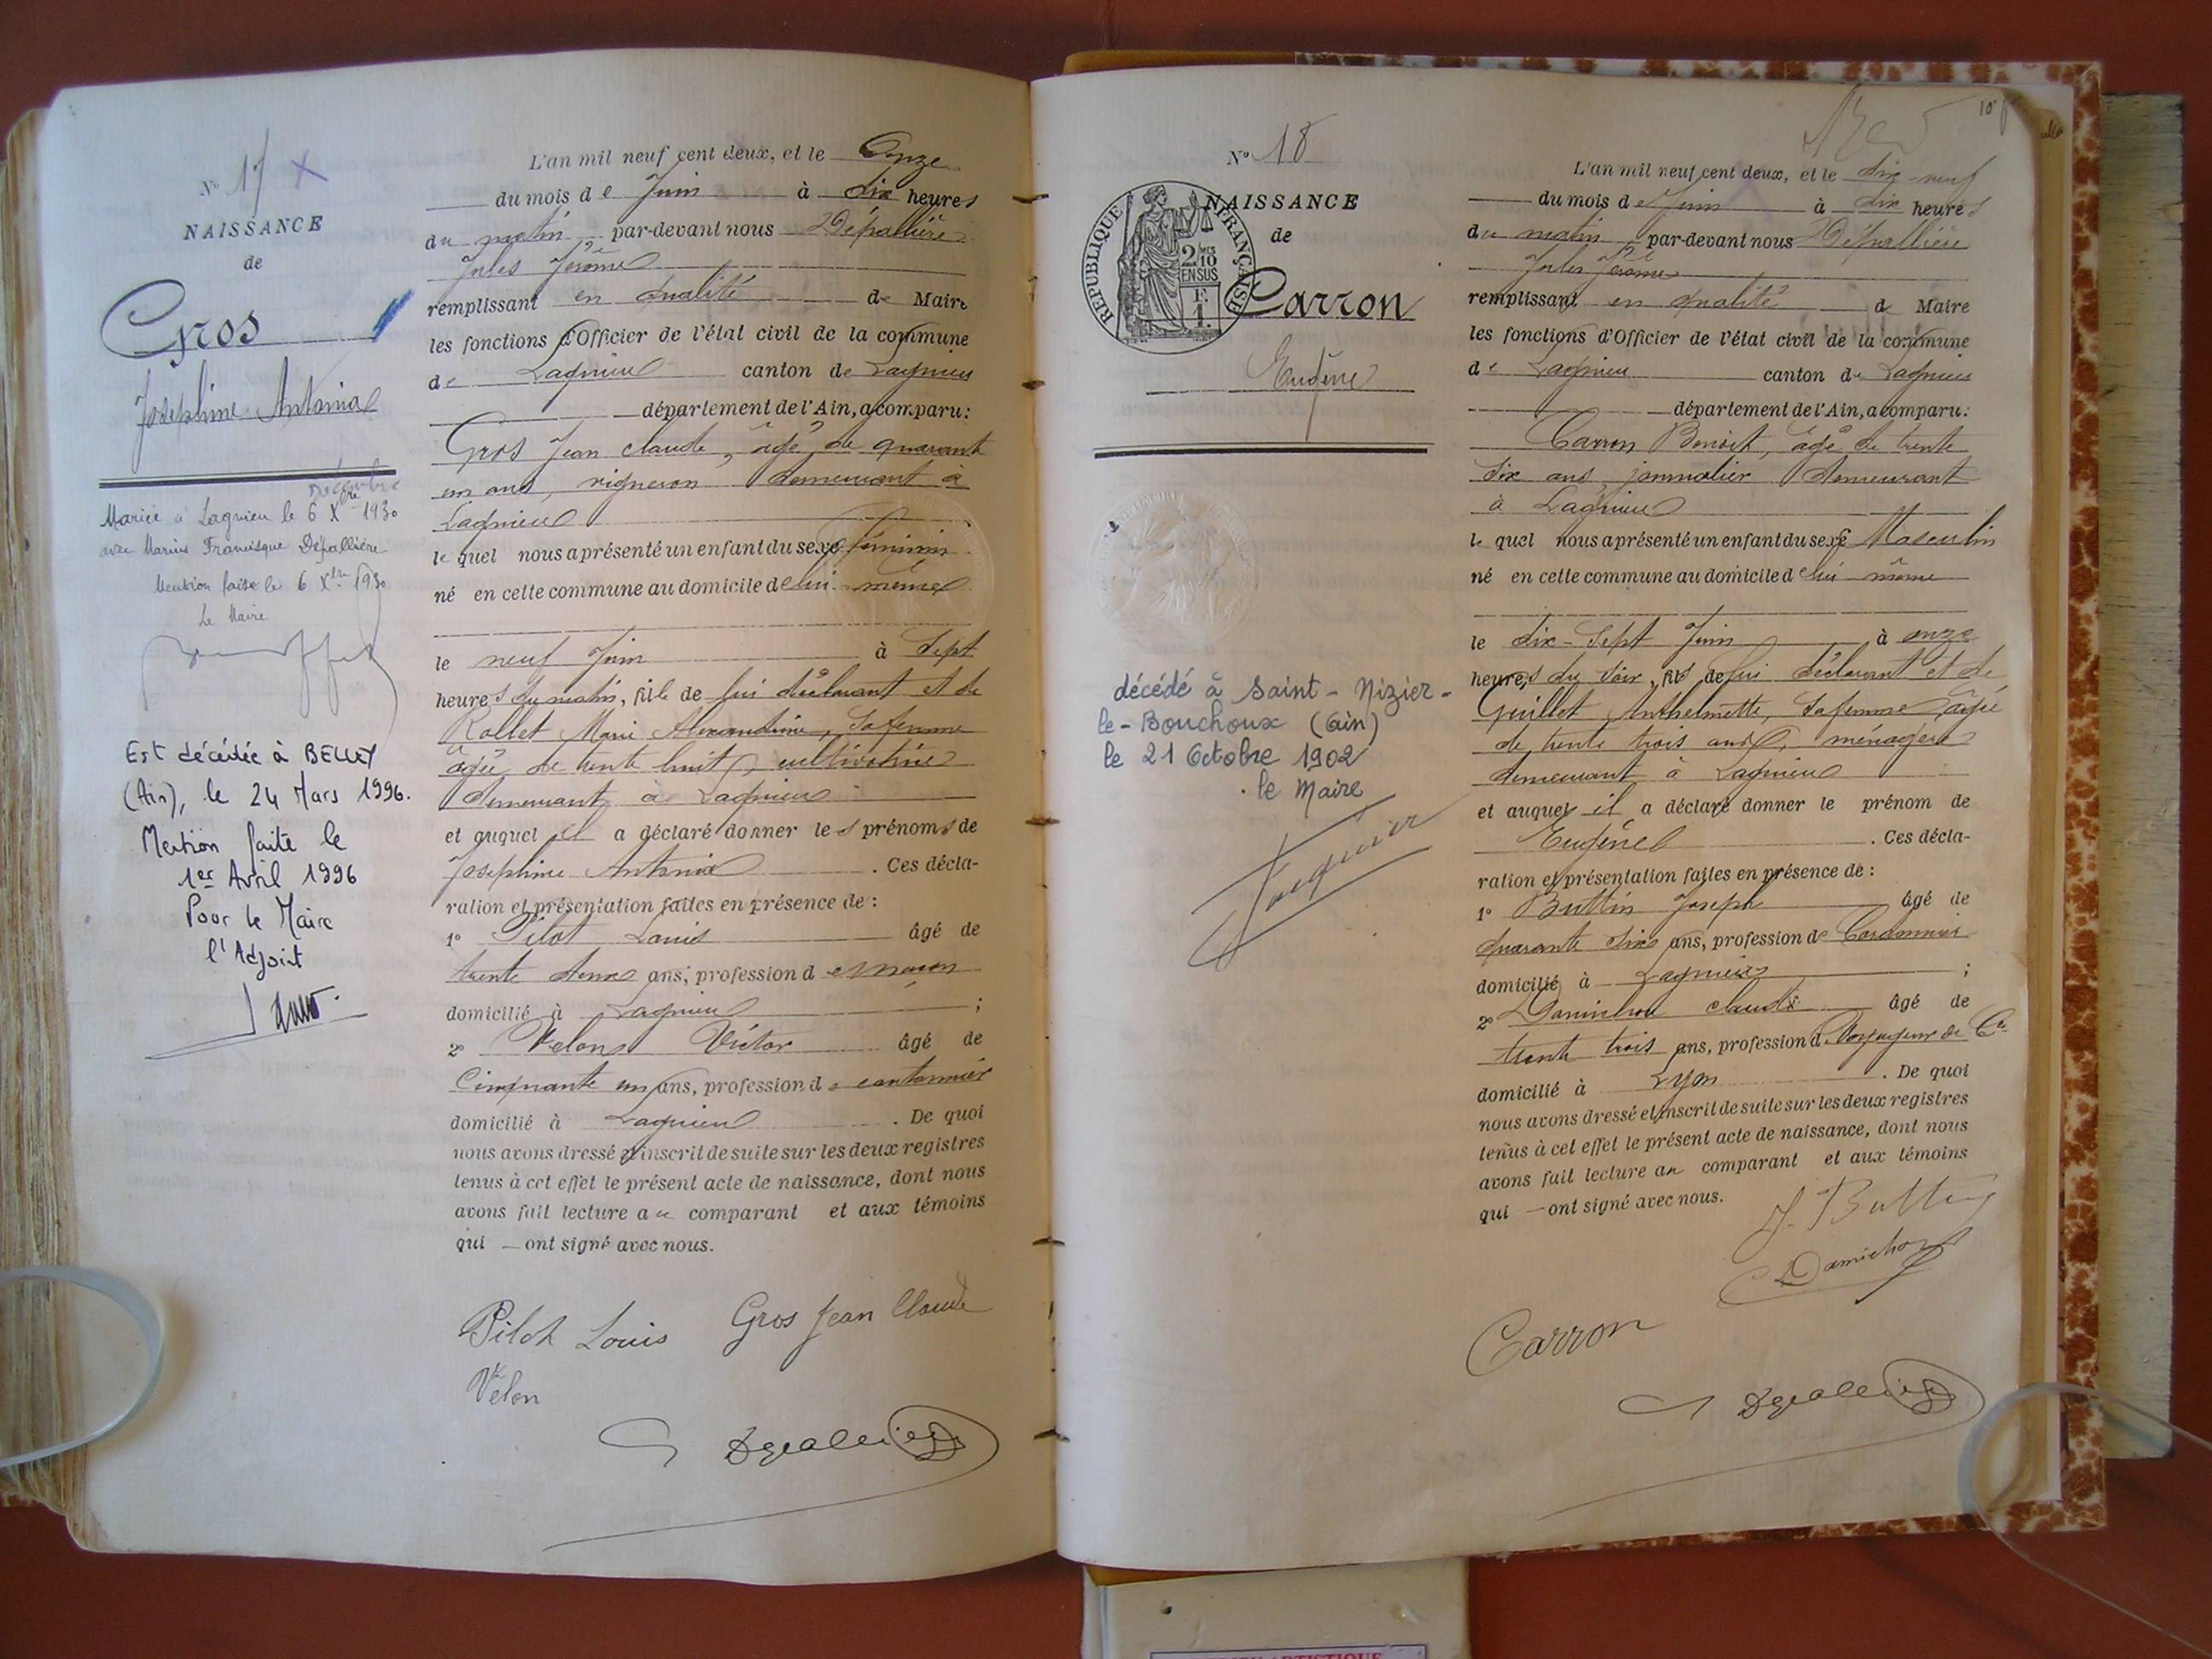 N° 17
NAISSANCE
de
Gros
Josephine Antonia
décembre
Mariée à Lagnieu le 6 Xbre 1930
avec Marius Francisque Dépallière
Mention faite le 6 Xbre 1930
Le Maire
Est décédée à BELLEY
(Ain), le 24 Mars 1996.
Mention faite le
1er Avril 1996
Pour le Maire
l'Adjoint
L'an mil neuf cent deux, et le Onze
du mois de Juin à dix heures
du matin par-devant nous Dépallière
Jules Jérôme
remplissant en qualité de Maire
les fonctions d'Officier de l'état civil de la commune
de Lagnieu canton de Lagnieu
département de l'Ain, a comparu:
Gros Jean claude, âgé de quarante
un ans, vigneron demeurant à
Lagnieu
lequel nous a présenté un enfant du sexe féminin
né en cette commune au domicile de lui-même
le neuf Juin à Sept
heures du matin, fille de lui déclarant et de
Rollet Marie Alexandrine, Sa femme
âgée de trente huit, cultivatrice
demeurant à Lagnieu
et auquel il a déclaré donner les prénoms de
Josephine Antonia. Ces décla-
ration et présentation faites en présence de:
1° Pilot Louis âgé de
trente deux ans, profession de maçon
domicilié à Lagnieu;
2° Velon Victor âgé de
Cinquante un ans, profession de cantonnier
domicilié à Lagnieu. De quoi
nous avons dressé et inscrit de suite sur les deux registres
tenus à cet effet le présent acte de naissance, dont nous
avons fait lecture au comparant et aux témoins
qui — ont signé avec nous.
Pilot Louis Gros Jean Claude
Velon
N° 18
NAISSANCE
de
REPUBLIQUE FRANÇAISE
2/10 EN SUS
F. 1.
Carron
Eugène
décédé à Saint-Nizier-
le-Bouchoux (Ain)
le 21 Octobre 1902
le Maire
L'an mil neuf cent deux, et le dix-neuf
du mois de Juin à dix heures
du matin par-devant nous Dépallière
Jules Jérôme
remplissant en qualité de Maire
les fonctions d'Officier de l'état civil de la commune
de Lagnieu canton de Lagnieu
département de l'Ain, a comparu:
Carron Benoît, âgé de trente
six ans, journalier demeurant
à Lagnieu
lequel nous a présenté un enfant du sexe Masculin
né en cette commune au domicile de lui même
le dix-Sept Juin à onze
heures du soir, fils de lui déclarant et de
Guillet Anthelmette, Sa femme âgée
de trente trois ans, ménagère
demeurant à Lagnieu
et auquel il a déclaré donner le prénom de
Eugène. Ces décla-
ration et présentation faites en présence de:
1° Buttin Joseph âgé de
quarante six ans, profession de Cordonnier
domicilié à Lagnieu;
2° Damichon claude âgé de
trente trois ans, profession de Voyageur de Cce
domicilié à Lyon. De quoi
nous avons dressé et inscrit de suite sur les deux registres
tenus à cet effet le présent acte de naissance, dont nous
avons fait lecture au comparant et aux témoins
qui — ont signé avec nous.
J. Buttin
Damichon
Carron